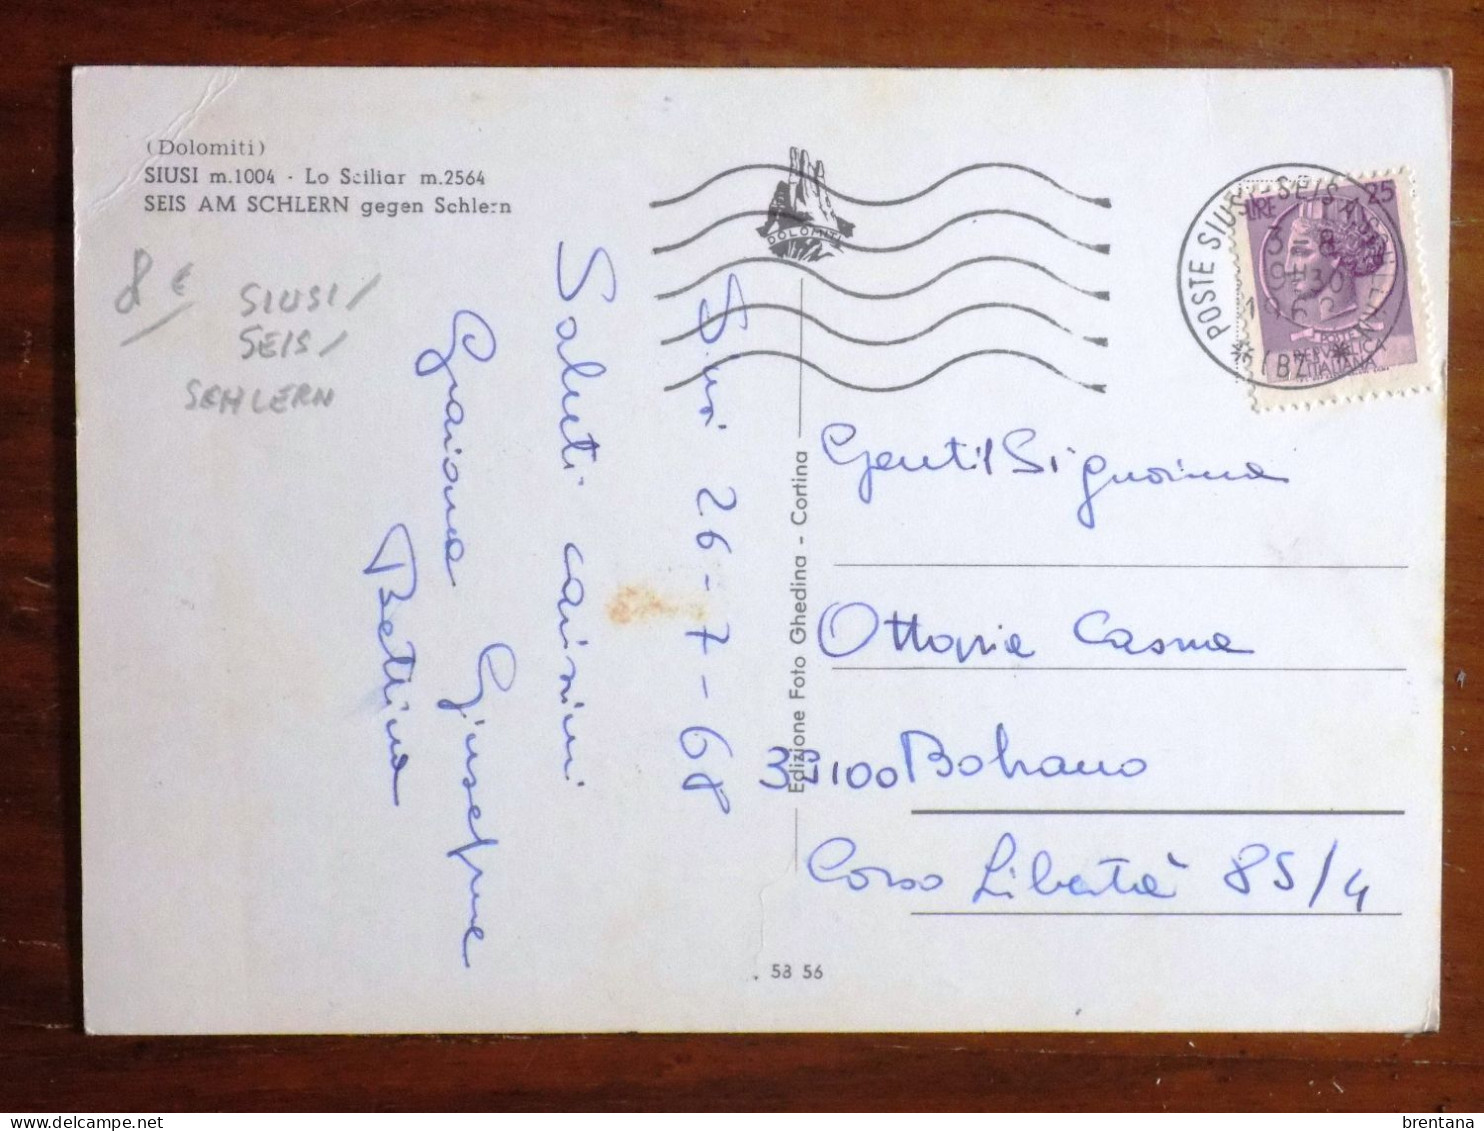 (Dolomiti)
SIUSI m.1004 - Lo Sciliar m.2564
SEIS AM SCHLERN gegen Schlern
8 €
SIUSI/
SEIS/
SEHLERN
Siusi 26-7-68
Saluti carissimi
Graziana Giuseppe
Bettina
Edizione Foto Ghedina - Cortina
DOLOMITI
POSTE SIUSI - SEIS A. SCHLERN
* (BZ) *
LIRE 25
POSTE
REPVBBLICA
ITALIANA
Gentil Signorina
Ottavia Casna
39100 Bolzano
Corso Libertà 85/4
53 56
brentana